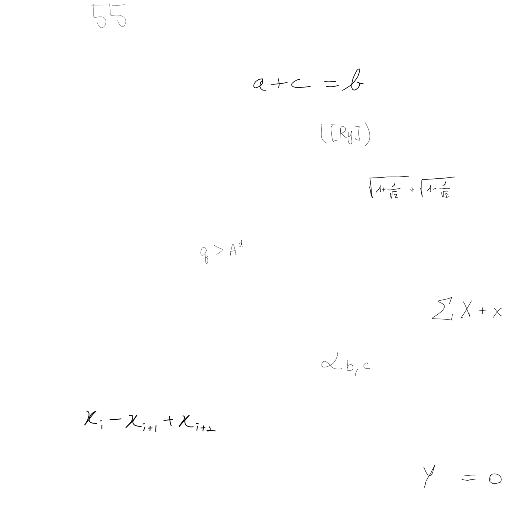 55
a + c = b
([Ry])
√(1+1/√2) + √(1-1/√2)
q > A^d
∑ X + x
α.b,c
x_i - x_{i+1} + x_{i+2}
Y = 0